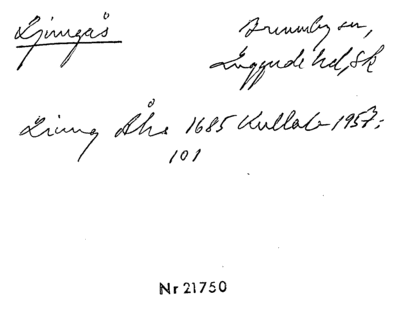 Ljungås
Brunnby sn,
Luggude hd, Sk
Liung Åhs 1685 Kullab 1957:
101
Nr 21750